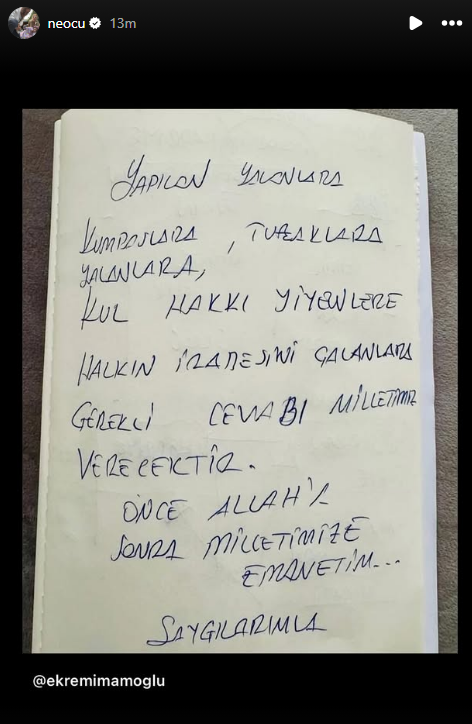 neocu 13m
YAPILAN YALANLARA
KUMPASLARA , TUZAKLARA
YALANLARA,
KUL HAKKI YİYENLERE
HALKIN İRADESİNİ ÇALANLARA
GEREKLİ CEVABI MİLLETİMİZ
VERECEKTİR.
ÖNCE ALLAH'A
SONRA MİLLETİMİZE
EMANETİM...
SAYGILARIMLA
@ekremimamoglu